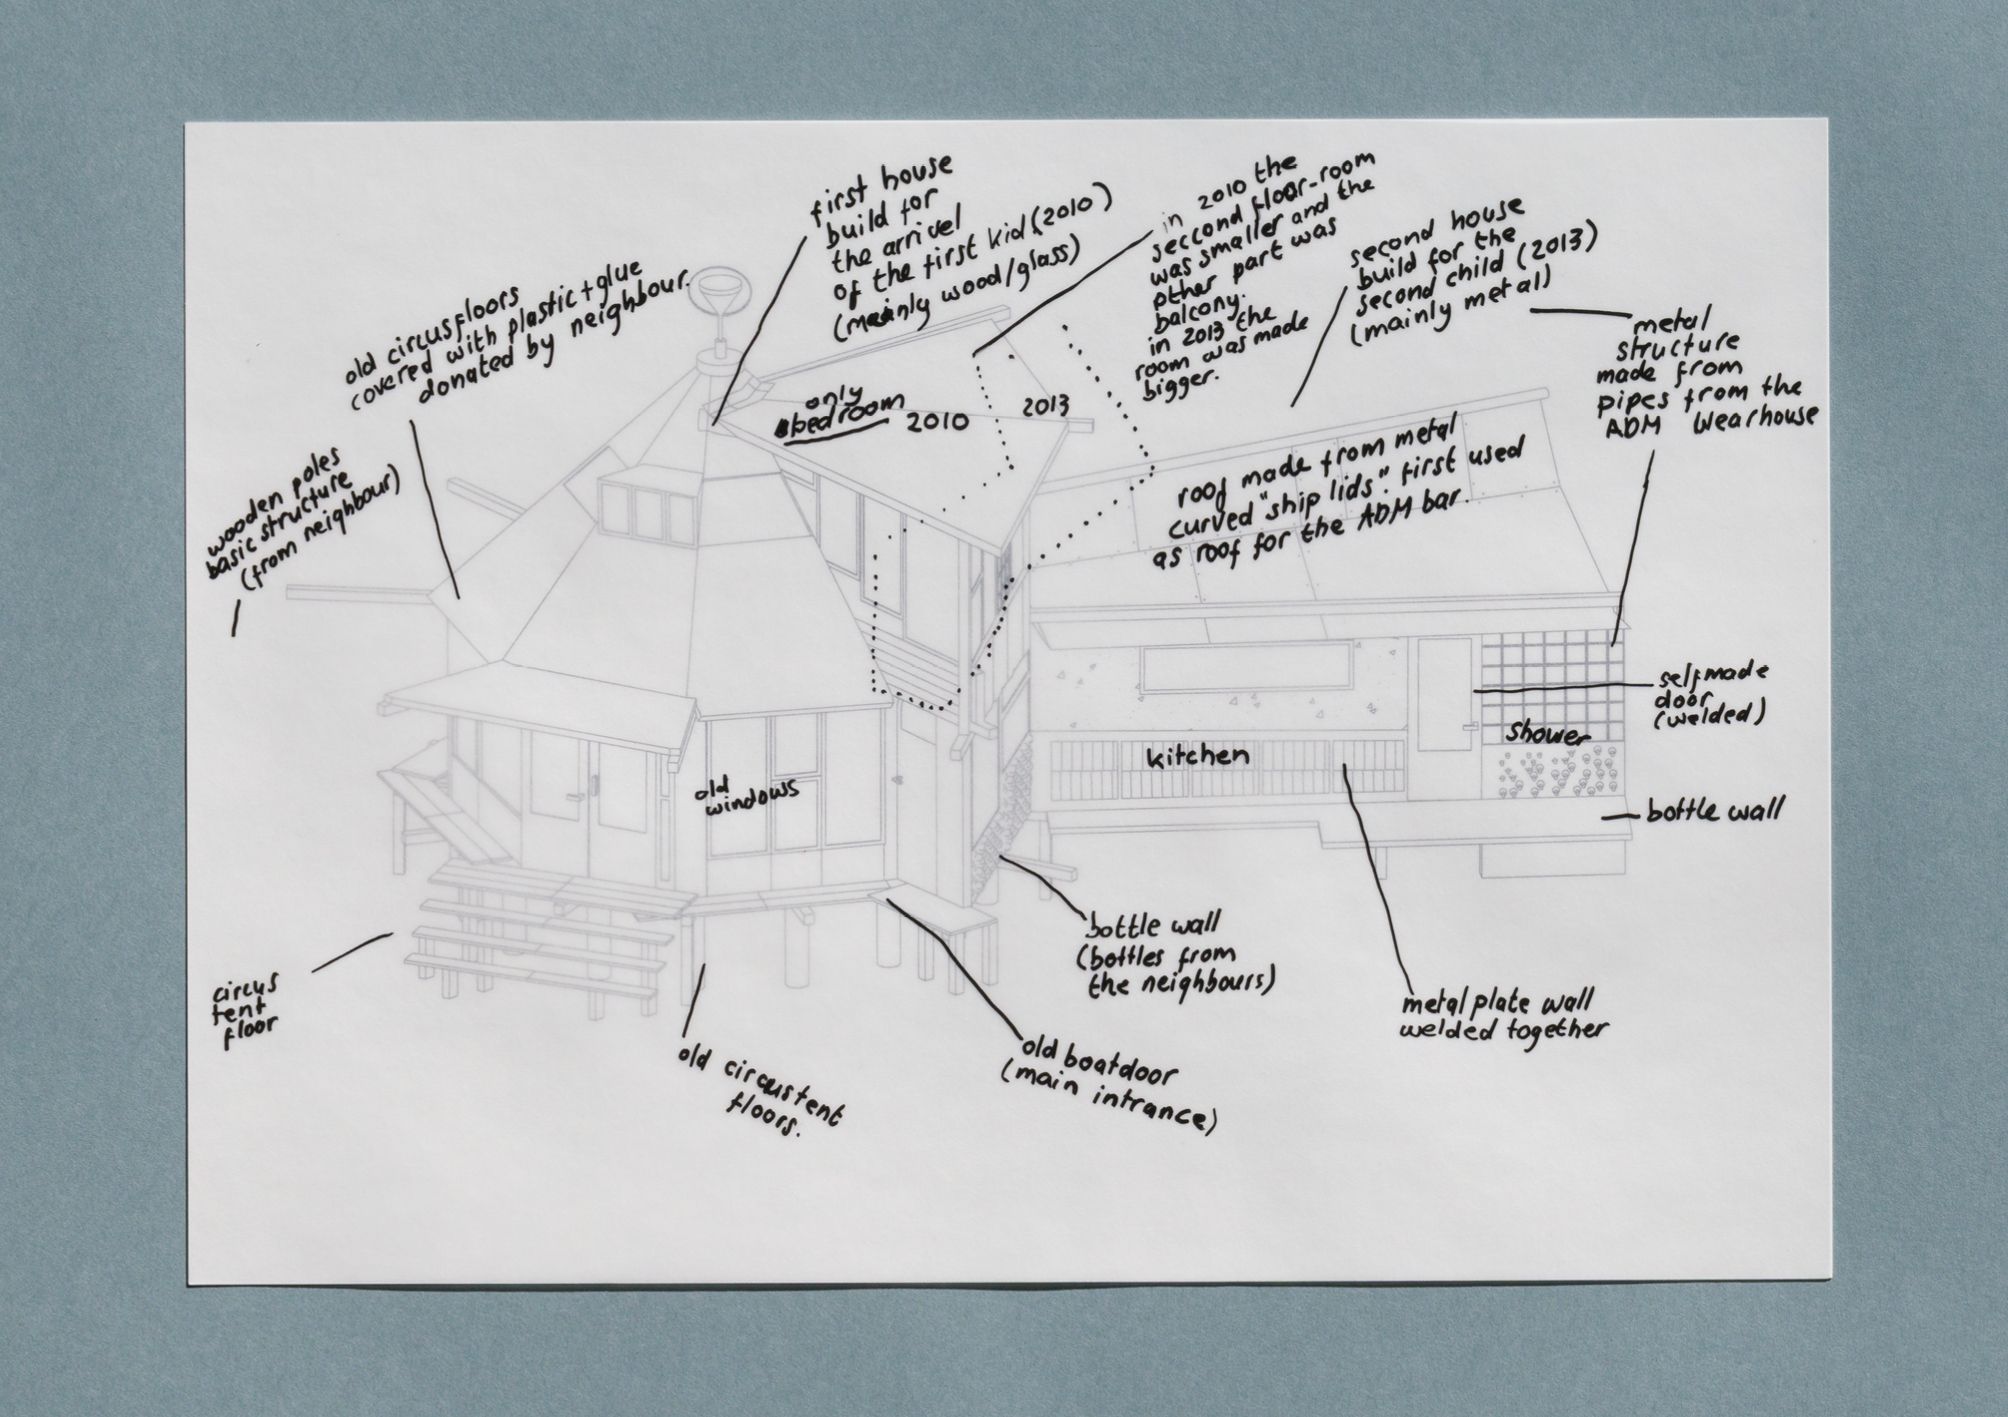 first house
build for
the arrivel
of the first kid (2010)
(mainly wood/glass)
in 2010 the
seccond floor-room
was smaller and the
other part was
balcony.
in 2013 the
room was made
bigger.
second house
build for the
second child (2013)
(mainly metal)
metal
structure
made from
pipes from the
ADM Wearhouse
old circusfloors
covered with plastic+glue
donated by neighbour.
wooden poles
basic structure
(from neighbour)
only
bedroom
2010
2013
roof made from metal
curved "ship lids". first used
as roof for the ADM bar.
selfmade
door
(welded)
shower
kitchen
old
windows
bottle wall
bottle wall
(bottles from
the neighbours)
metalplate wall
welded together
circus
tent
floor
old circustent
floors.
old boatdoor
(main intrance)